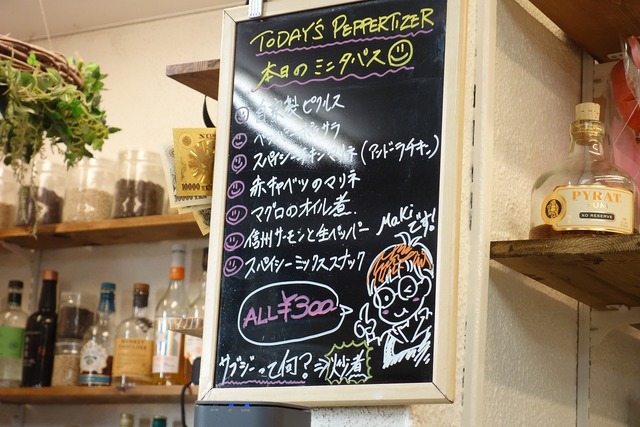 TODAY'S PEPPERTIZER
本日のミニタパス
自家製ピクルス
スパイシーチキンマリネ(アンドラチキン)
赤キャベツのマリネ
マグロのオイル煮
信州サーモンと生ペッパー
スパイシーミックススナック
Makiです!
ALL ¥300
サブジーって何? ⇒炒煮
PYRAT
RUM
XO RESERVE
10000